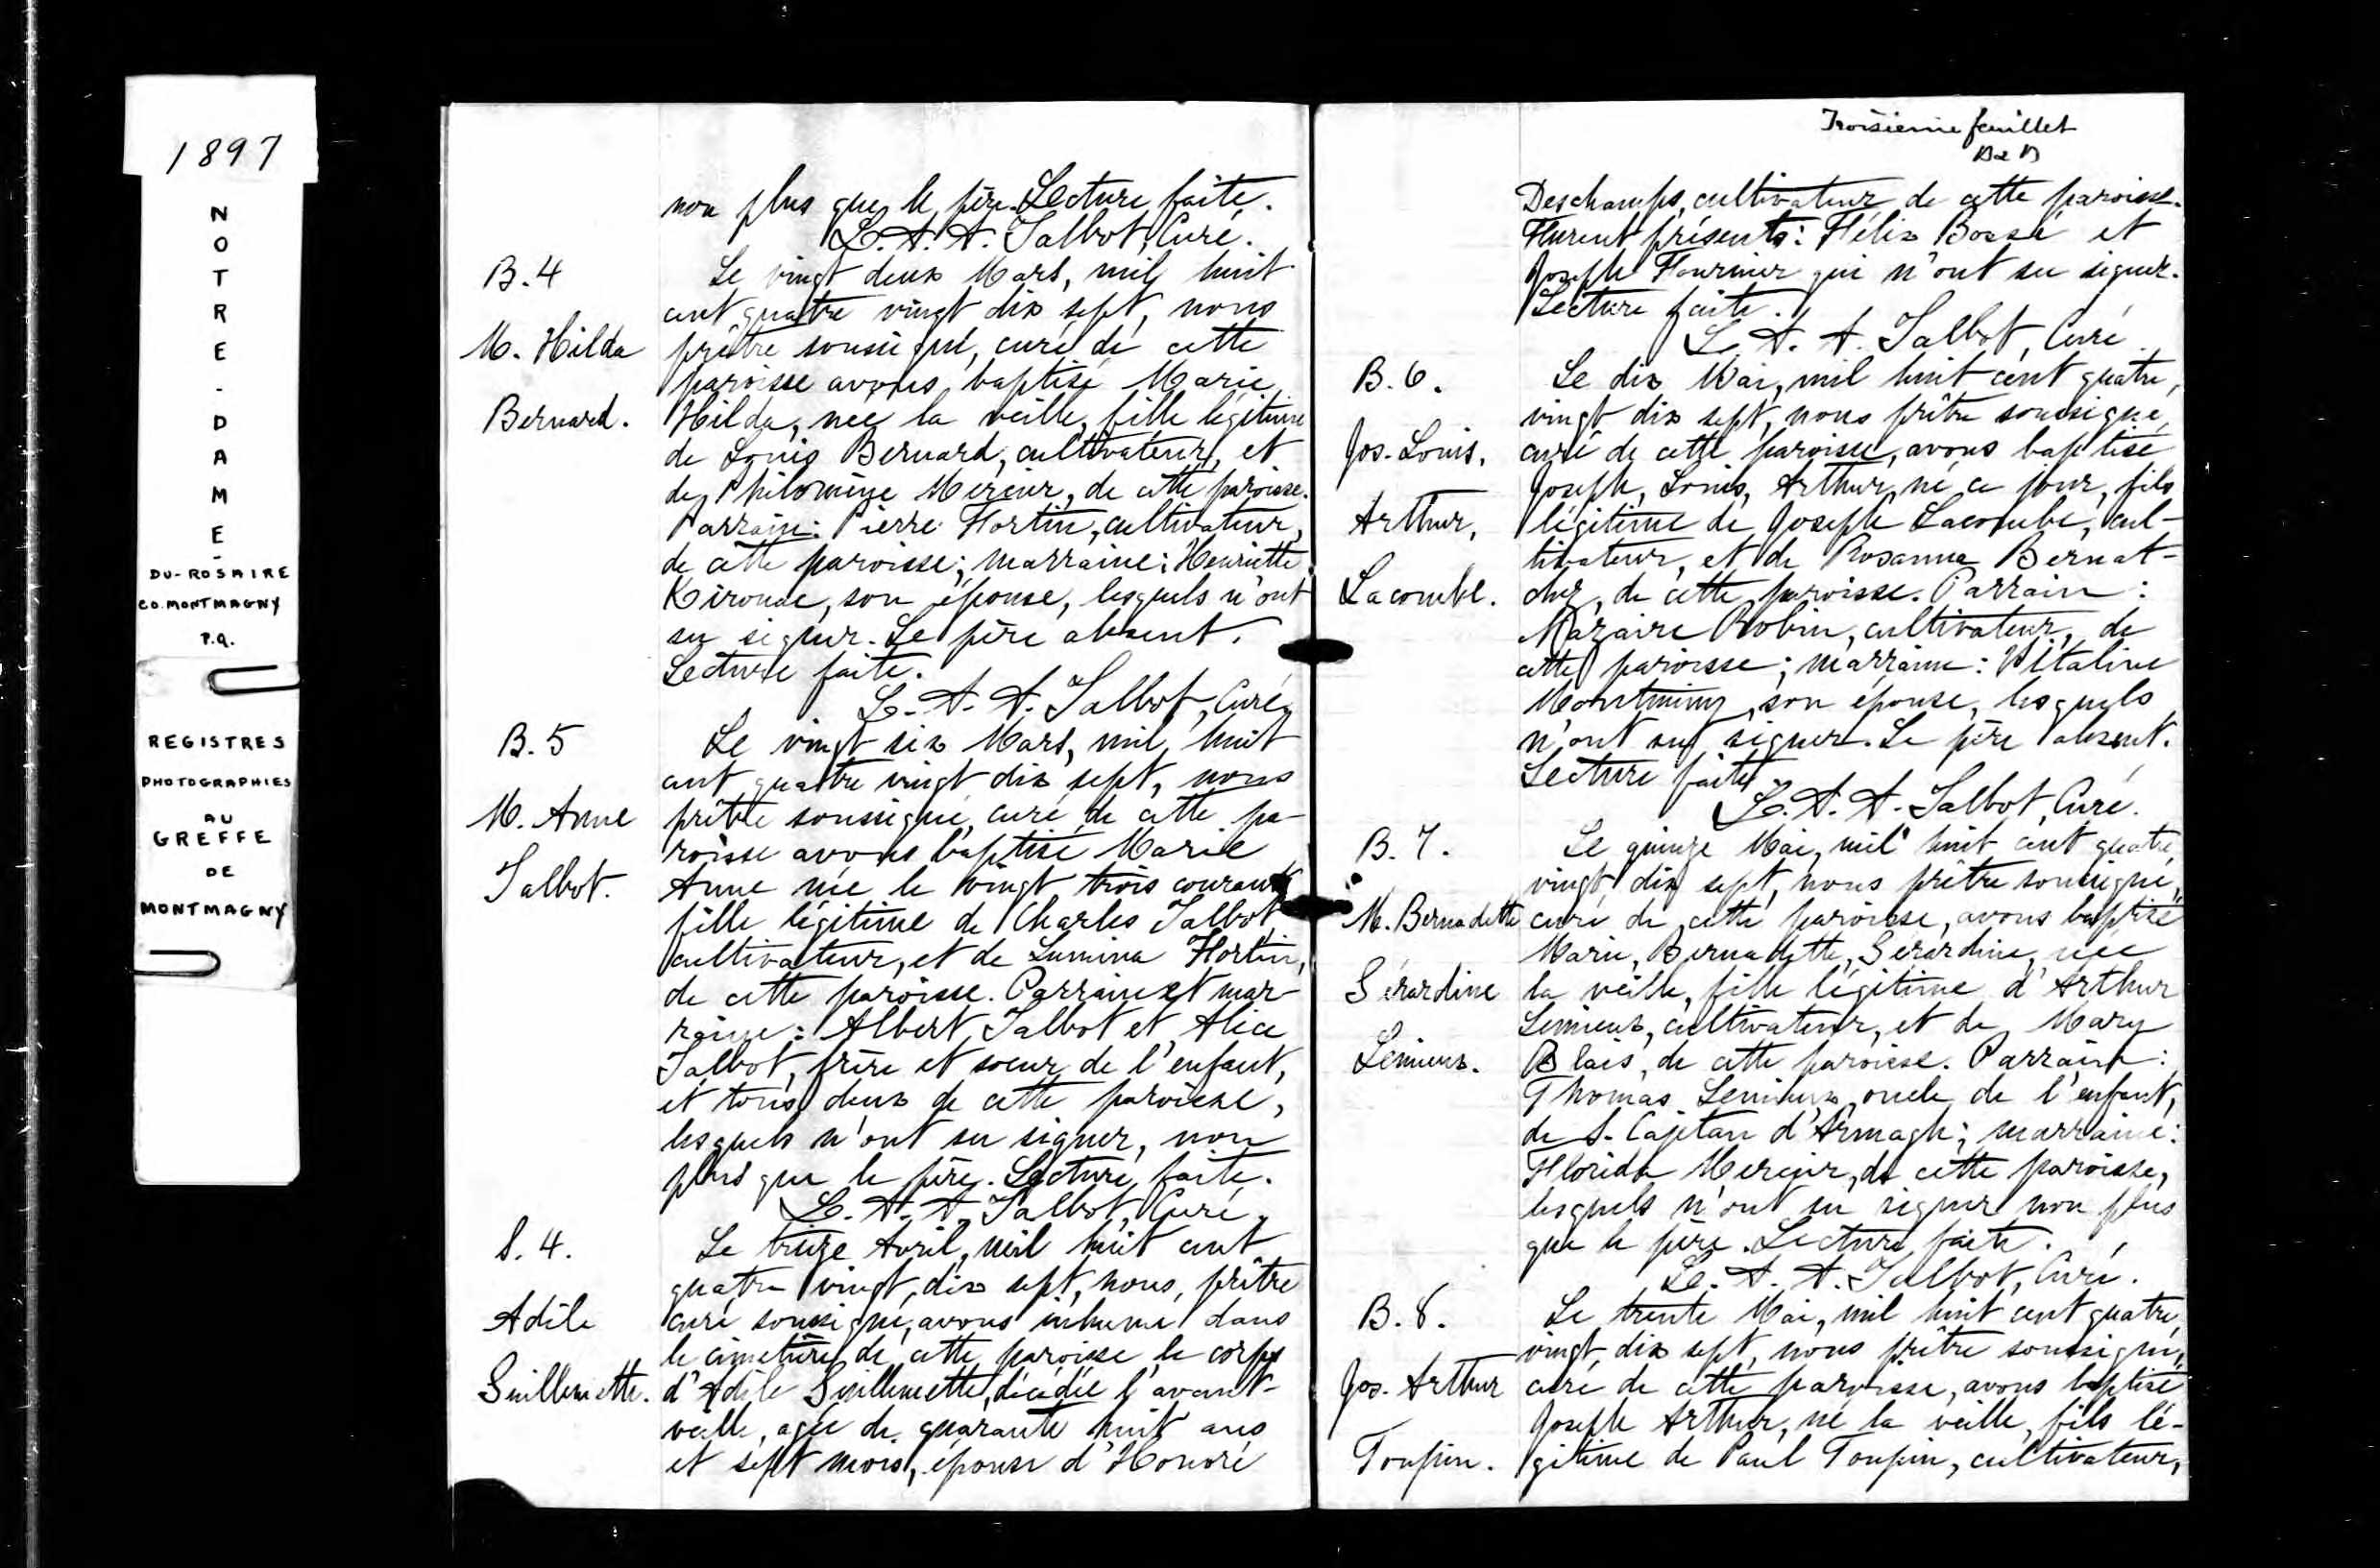 1897
NOTRE-DAME-
DU-ROSAIRE
CO. MONTMAGNY
P.Q.
REGISTRES
PHOTOGRAPHIES
AU
GREFFE
DE
MONTMAGNY
non plus que le père. Lecture faite.
L. A. A. Talbot, Curé.
B. 4
M. Hilda
Bernard.
Le vingt deux Mars, mil huit
cent quatre vingt dix sept, nous
prêtre soussigné, curé de cette
paroisse avons baptisé Marie
Hilda, née la veille, fille légitime
de Louis Bernard, cultivateur, et
de Philomène Mercier, de cette paroisse.
Parrain: Pierre Fortin, cultivateur,
de cette paroisse; marraine: Henriette
Kirouac, son épouse, lesquels n'ont
su signer. Le père absent.
Lecture faite.
L. A. A. Talbot, Curé,
B. 5
M. Anne
Talbot.
Le vingt six Mars, mil huit
cent quatre vingt dix sept, nous
prêtre soussigné, curé de cette pa-
roisse avons baptisé Marie
Anne née le vingt trois courant
fille légitime de Charles Talbot
cultivateur, et de Lumina Fortin,
de cette paroisse. Parrain et mar-
raine: Albert Talbot et Alice
Talbot, frère et soeur de l'enfant,
et tous deux de cette paroisse,
lesquels n'ont su signer, non
plus que le père. Lecture faite.
L. A. A. Talbot, Curé.
S. 4.
Adèle
Guillemette.
Le treize Avril, mil huit cent
quatre vingt, dix sept, nous, prêtre
curé soussigné, avons inhumé dans
le cimetière de cette paroisse le corps
d'Adèle Guillemette, décédée l'avant-
veille, agée de quarante huit ans
et sept mois, épouse d'Honoré
Troisième feuillet
Deschamps, cultivateur de cette paroisse.
Furent présents: Félix Bossé et
Joseph Fournier qui n'ont su signer.
Lecture faite.
L. A. A. Talbot, Curé
B. 6.
Jos. Louis,
Arthur,
Lacombe.
Le dix Mai, mil huit cent quatre,
vingt dix sept, nous prêtre soussigné,
curé de cette paroisse, avons baptisé
Joseph, Louis, Arthur, né ce jour, fils
légitime de Joseph Lacombe, cul-
tivateur, et de Rosanna Bernat-
chez, de cette paroisse. Parrain:
Nazaire Robin, cultivateur, de
cette paroisse; marraine: Vitaline
Montminy, son épouse, lesquels
n'ont su signer. Le père absent.
Lecture faite
L. A. A. Talbot, Curé.
B. 7.
M. Bernadette
Gérardine
Lemieux.
Le quinze Mai, mil huit cent quatre,
vingt dix sept, nous prêtre soussigné,
curé de cette paroisse, avons baptisé
Marie, Bernadette, Gérardine, née
la veille, fille légitime d'Arthur
Lemieux, cultivateur, et de Mary
Blais, de cette paroisse. Parrain:
Thomas Lemieux, oncle de l'enfant,
de S. Cajetan d'Armagh; marraine:
Florida Mercier, de cette paroisse,
lesquels n'ont su signer non plus
que le père. Lecture faite.
L. A. A. Talbot, Curé.
B. 8.
Jos. Arthur
Toupin.
Le trente Mai, mil huit cent quatre
vingt, dix sept, nous prêtre soussigné,
curé de cette paroisse, avons baptisé
Joseph Arthur, né la veille, fils lé-
gitime de Paul Toupin, cultivateur,